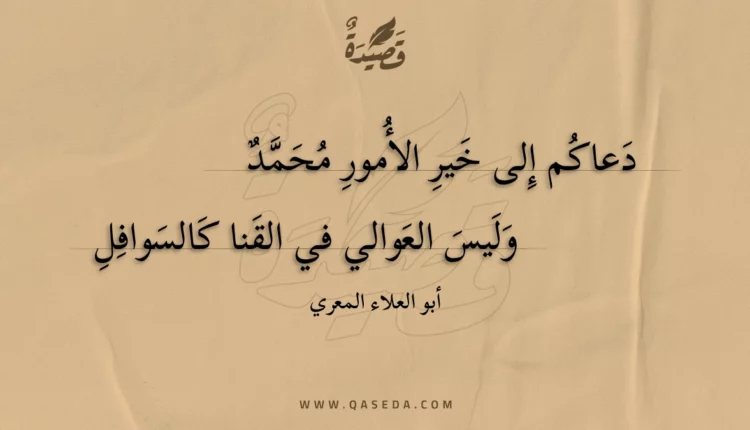 قَصِيدَةٌ
دَعاكُم إِلى خَيرِ الأُمورِ مُحَمَّدٌ
وَلَيسَ العَوالي في القَنا كَالسَوافِلِ
أبو العلاء المعري
WWW.QASEDA.COM